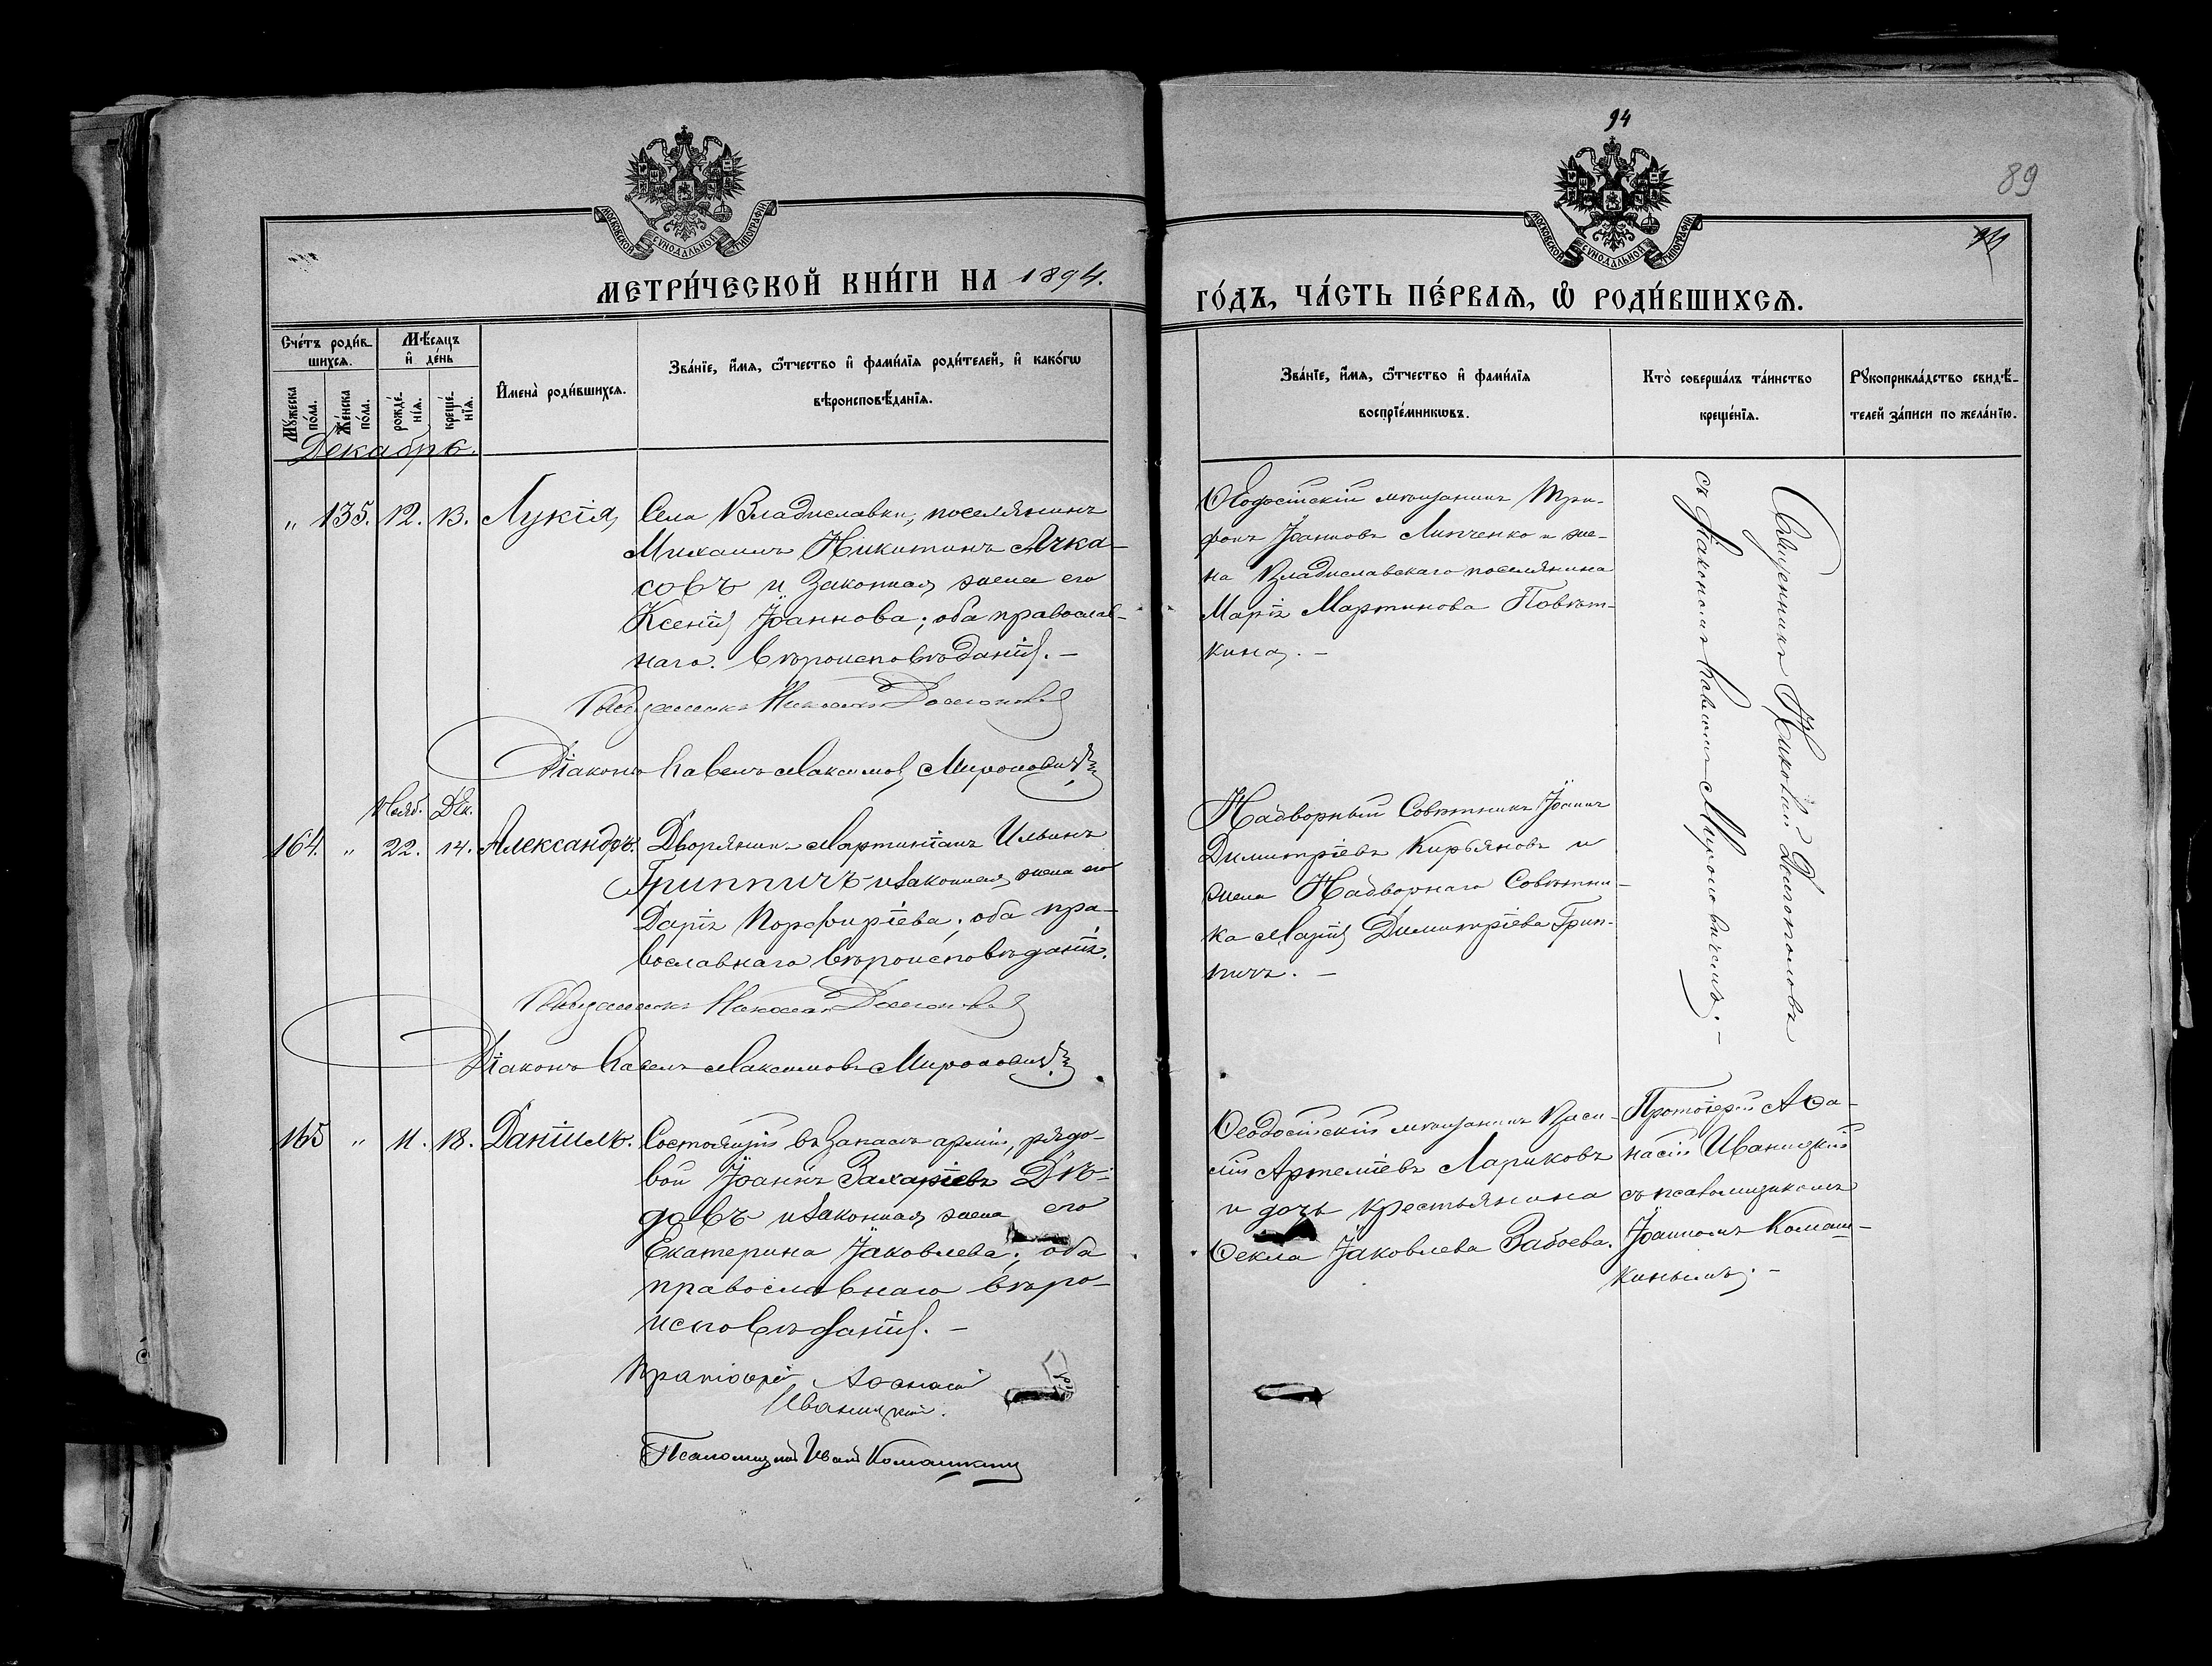 94
89
МОСКОВСКОЙ СѴНОДАЛЬНОЙ ТИПОГРАФІИ
МОСКОВСКОЙ СѴНОДАЛЬНОЙ ТИПОГРАФІИ
МЕТРИ́ЧЕСКОЙ КНИ́ГИ НА 1894.
ГО́ДЪ, ЧА́СТЬ ПЕ́РВАѦ, Ѡ҆ РОДИ́ВШИХСѦ.
Сче́тъ роди́в-
шихсѧ.
Мꙋ́жеска по́ла.
Же́нска по́ла.
Мѣ́сѧцъ
и҆ де́нь
рожде́-
нїѧ.
креще́-
нїѧ.
И҆мена̀ роди́вшихсѧ.
Зва́нїе, и҆́мѧ, ѻ҆́тчество и҆ фами́лїѧ роди́телей, и҆ како́гѡ
вѣроисповѣ́данїѧ.
Зва́нїе, и҆́мѧ, ѻ҆́тчество и҆ фами́лїѧ
воспрїе́мникѡвъ.
Кто̀ соверша́лъ та́инство
креще́нїѧ.
Рꙋкоприкла́дство свидѣ́-
телей за́писи по жела́нїю.
Декабрь.
" 135. 12. 13. Лукія,
Села Владиславки, поселянинъ
Михаилъ Никитинъ Ачка-
совъ и законная жена его
Ксенія Іоаннова; оба православ-
наго вѣроисповѣданія. –
Священникъ Николай Долгополовъ
Діаконъ Павелъ Максимовъ Мироновичъ
Ѳеодосійскій мѣщанинъ Три-
фонъ Іоанновъ Липченко и же-
на Владиславскаго поселянина
Марія Мартинова Повѣт-
кина. –
Священникъ Николай Долгополовъ
съ діакономъ Павломъ Мироновичемъ. –
Нояб. Дек.
164. " 22. 14. Александръ.
Дворянинъ Мартиніанъ Ильинъ
Гриппичъ и законная жена его
Дарія Порфиріева; оба пра-
вославнаго вѣроисповѣданія.
Священникъ Николай Долгополовъ
Діаконъ Павелъ Максимовъ Мироновичъ
Надворный Совѣтникъ Іоаннъ
Димитріевъ Кирьяновъ и
жена Надворнаго Совѣтни-
ка Марія Димитріева Грип-
пичъ. –
165 " 11. 18. Даніилъ.
Состоящій въ запасѣ арміи, рядо-
вой Іоаннъ Захаріевъ Дѣ-
довъ и законная жена его
Екатерина Іаковлева; оба
православнаго вѣро-
исповѣданія. –
Протоіерей Аѳанасій
Иваницкій.
Псаломщикъ Иванъ Комашкинъ
Ѳеодосійскій мѣщанинъ Васи-
лій Артеміевъ Лариковъ
и дочь крестьянина
Ѳекла Іаковлева Забоева.
Протоіерей Аѳа-
насій Иваницкій
съ псаломщикомъ
Іоанномъ Комаш-
кинымъ. –